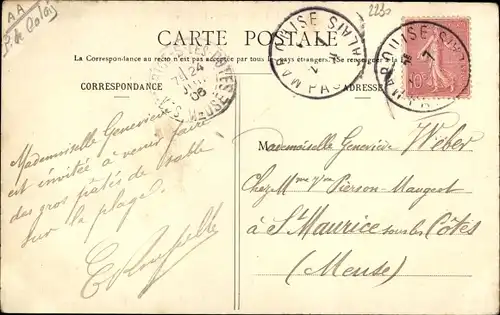 AA
P. de Calais
2230
CARTE POSTALE
La Correspondance au recto n'est pas acceptée par tous les pays étrangers. (Se renseigner à la
CORRESPONDANCE
ADRESSE
MARQUISE
PAS CALAIS
MARQUISE
CALAIS
10c
7H 24
JUIL
06
MEUSE
Mademoiselle Geneviève
est invitée à venir faire
des gros pâtés de sable
sur la plage.
Mademoiselle Geneviève Wéber
Chez Mme Vve Pierson-Maugeot
à St Maurice sous les Côtes
(Meuse)